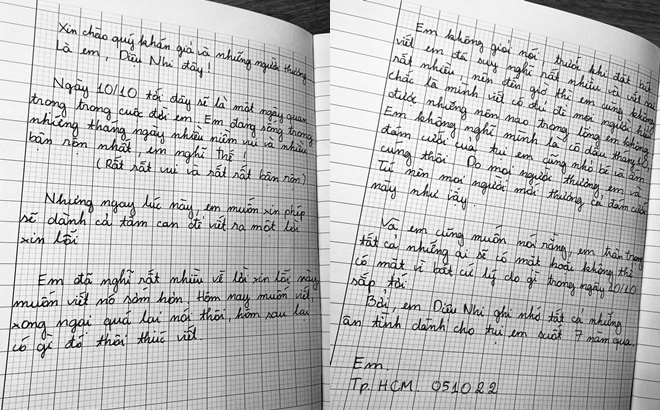 Xin chào quý khán giả và những người thương
Là em, Diệu Nhi đây!
Ngày 10/10 tới đây sẽ là một ngày quan
trọng trong cuộc đời em. Em đang sống trong
những tháng ngày nhiều niềm vui và nhiều
bận rộn nhất, em nghĩ thế!
(Rất rất vui và rất rất bận rộn)
Nhưng ngay lúc này, em muốn xin phép
sẽ dành cả tâm can để viết ra một lời
xin lỗi
Em đã nghĩ rất nhiều về lời xin lỗi này
muốn viết nó sớm hơn, hôm nay muốn viết,
xong ngại quá lại nói thôi, hôm sau lại
có gì đó thôi thúc viết.
Em không giỏi nói, trước khi đặt bút
viết em đã suy nghĩ rất nhiều và viết sau
rất nhiều, nên đến giờ thì em cũng không
chắc là mình viết có đủ để mọi người hiểu
được những nôn nao trong lòng em không.
Em không nghĩ mình là cô dâu tháng 10,
đám cưới của tụi em cũng nhỏ bé và ấm
cúng thôi. Do mọi người thương em và
Tú nên mọi người mới thương cả đám cưới
này như vậy.
Và em cũng muốn nói rằng, em trân trọng
tất cả những ai sẽ có mặt hoặc không thể
có mặt vì bất cứ lý do gì trong ngày 10/10
sắp tới.
Bởi, em Diệu Nhi ghi nhớ tất cả những
ân tình dành cho tụi em suốt 7 năm qua.
Em.
Tp. HCM. 051022